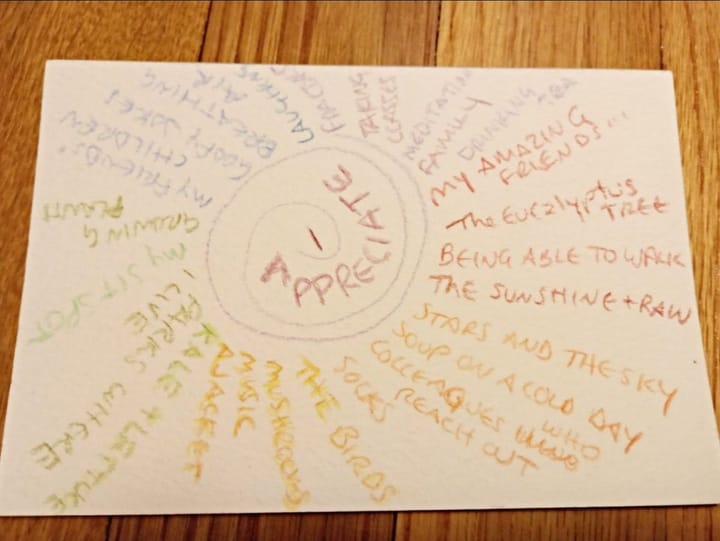 I
APPRECIATE
TAKING
CLASSES
MEDITATION
FAMILY
DRINKING
TEA
MY AMAZING
FRIENDS...
The Eucalyptus
TREE
BEING ABLE TO WALK
THE SUNSHINE + RAIN
STARS AND THE SKY
SOUP ON A COLD DAY
COLLEAGUES WHO
REACH OUT
SOCKS
THE BIRDS
MUSHROOMS
MUSIC
KALE + LETTUCE
PARKS WHERE
I LIVE
MY SIT SPOT
GROWING
PLANTS
MY FRIENDS'
CHILDREN
GOOFY JOKES
BREATHING
AIR
LAUGHING